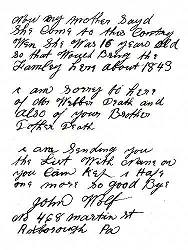 now my mother sayd
She Come to this Contry
Wen She Was 16 years old
so that Would Bring the
Familey here about 1843
i am Sorry to here
of Mr Webber Death and
Also of your Brother
Death
i am Sending you
the List With
you Can Kep i Hafe
one more so good Bye
John Wolf
No 468 martin St
Roxborough Pa